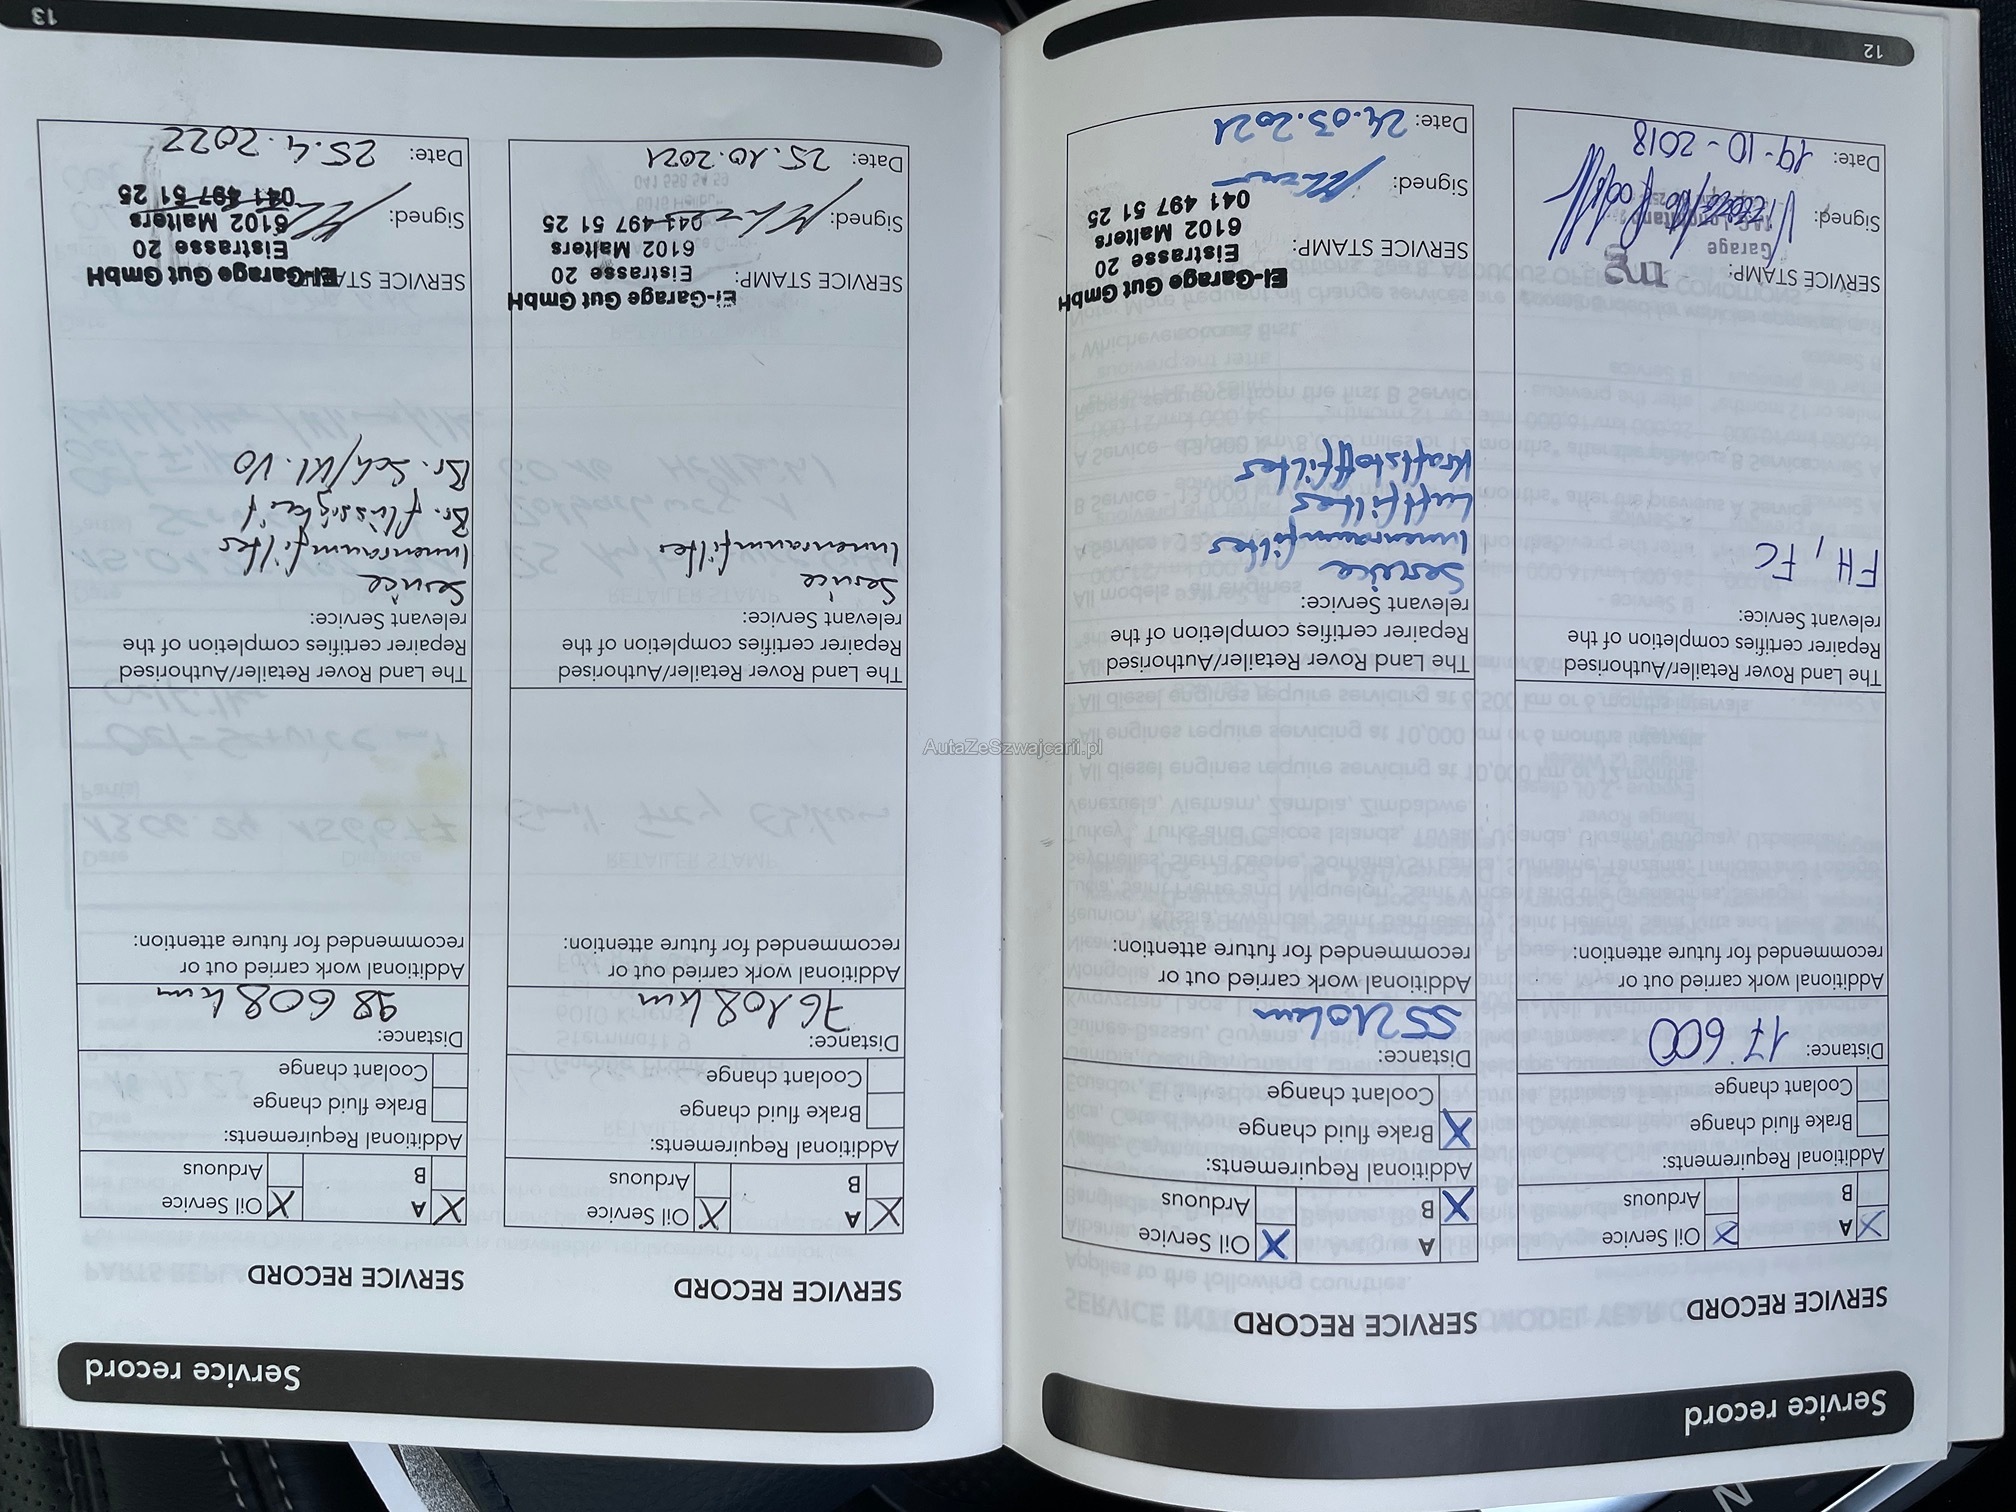 Service record
SERVICE RECORD
A
B
Oil Service
Arduous
Additional Requirements:
Brake fluid change
Coolant change
Distance: 17 600
Additional work carried out or
recommended for future attention:
The Land Rover Retailer/Authorised
Repairer certifies completion of the
relevant Service:
FH, FC
SERVICE STAMP:
mg
Garage
Signed:
Date: 19-10-2018
SERVICE RECORD
A
B
Oil Service
Arduous
Additional Requirements:
Brake fluid change
Coolant change
Distance:
55210 km
Additional work carried out or
recommended for future attention:
The Land Rover Retailer/Authorised
Repairer certifies completion of the
relevant Service:
Service
Innenraumfilter
Luftfilter
Kraftstofffilter
SERVICE STAMP:
Ei-Garage Gut GmbH
Eistrasse 20
6102 Malters
041 497 51 25
Signed:
Date: 24.03.2021
12
Service record
SERVICE RECORD
A
B
Oil Service
Arduous
Additional Requirements:
Brake fluid change
Coolant change
Distance:
76108 km
Additional work carried out or
recommended for future attention:
The Land Rover Retailer/Authorised
Repairer certifies completion of the
relevant Service:
Service
Innenraumfilter
SERVICE STAMP:
Ei-Garage Gut GmbH
Eistrasse 20
6102 Malters
041 497 51 25
Signed:
Date: 25.10.2021
SERVICE RECORD
A
B
Oil Service
Arduous
Additional Requirements:
Brake fluid change
Coolant change
Distance:
98608 km
Additional work carried out or
recommended for future attention:
The Land Rover Retailer/Authorised
Repairer certifies completion of the
relevant Service:
Service
Innenraumfilter
Br. flüssigkeit
Br. Sch/Kl. VO
SERVICE STAMP:
Ei-Garage Gut GmbH
Eistrasse 20
6102 Malters
041 497 51 25
Signed:
Date: 25.4.2022
13
AutaZeSzwajcarii.pl